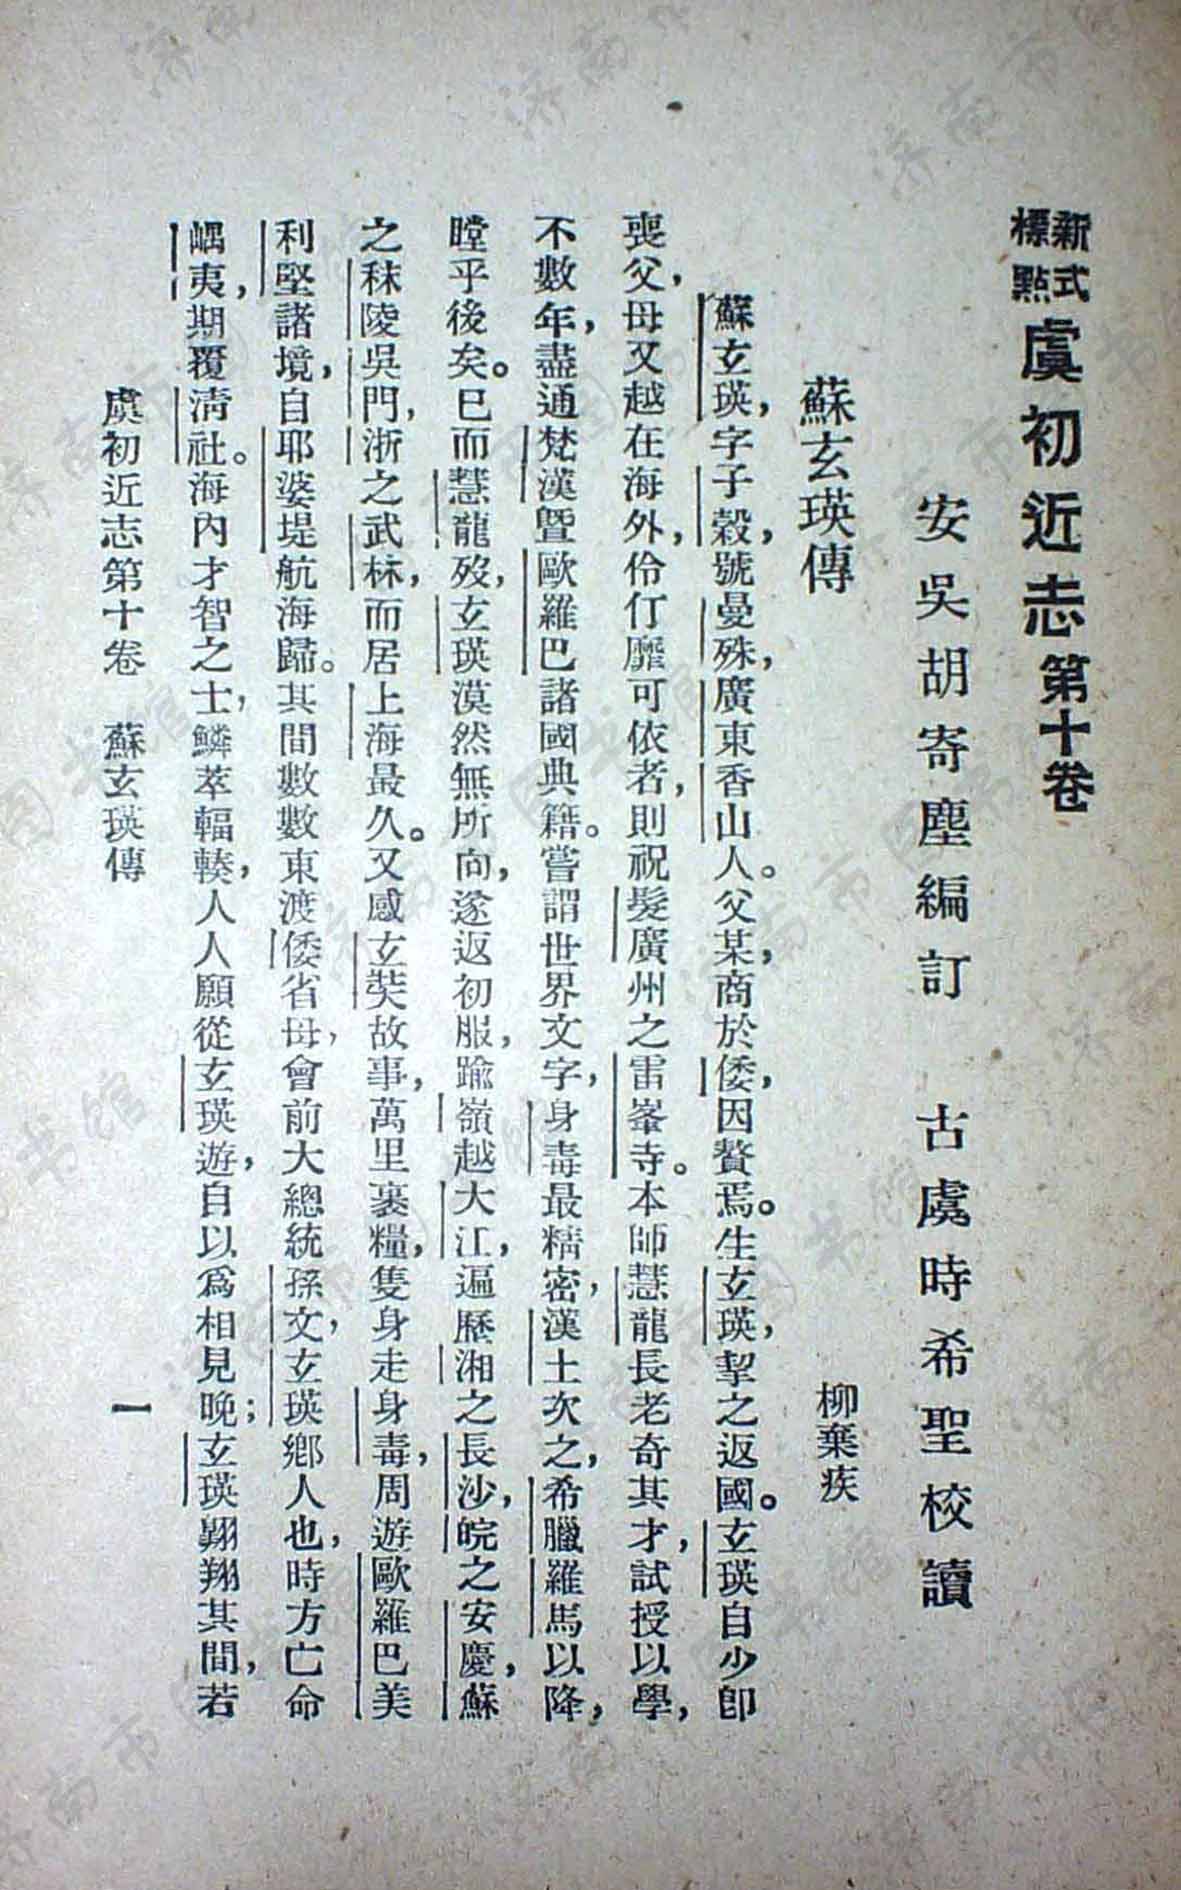 新式標點 虞初近志第十卷
安吳胡寄塵編訂 古虞時希聖校讀
蘇玄瑛傳 柳棄疾
蘇玄瑛，字子穀，號曼殊，廣東香山人。父某，商於倭，因贅焉。生玄瑛，挈之返國。玄瑛自少卽
喪父，母又越在海外，伶仃靡可依者，則祝髮廣州之雷峯寺。本師慧龍長老奇其才，試授以學，
不數年，盡通梵漢曁歐羅巴諸國典籍。嘗謂世界文字，身毒最精密，漢土次之，希臘羅馬以降，
瞠乎後矣。已而慧龍歿，玄瑛漠然無所向，遂返初服，踰嶺越大江，遍歷湘之長沙，皖之安慶，蘇
之秣陵吳門，浙之武林，而居上海最久。又感玄奘故事，萬里裹糧，隻身走身毒，周遊歐羅巴美
利堅諸境，自耶婆堤航海歸。其間數數東渡倭省母，會前大總統孫文，玄瑛鄕人也，時方亡命
嵎夷，期覆清社。海內才智之士，鱗萃輻輳，人人願從玄瑛遊，自以爲相見晚；玄瑛翺翔其間，若
虞初近志第十卷 蘇玄瑛傳 一
济南市图书馆